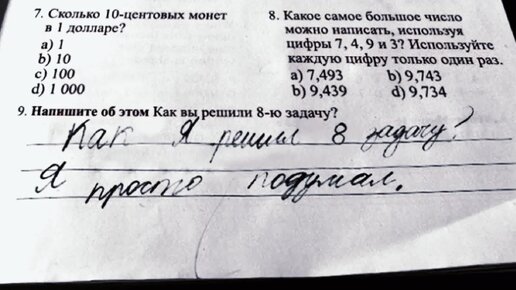 7. Сколько 10-центовых монет
в 1 долларе?
a) 1
b) 10
c) 100
d) 1 000
8. Какое самое большое число
можно написать, используя
цифры 7, 4, 9 и 3? Используйте
каждую цифру только один раз.
a) 7,493 b) 9,743
b) 9,439 d) 9,734
9. Напишите об этом Как вы решили 8-ю задачу?
Как я решил 8 задачу?
Я просто подумал.